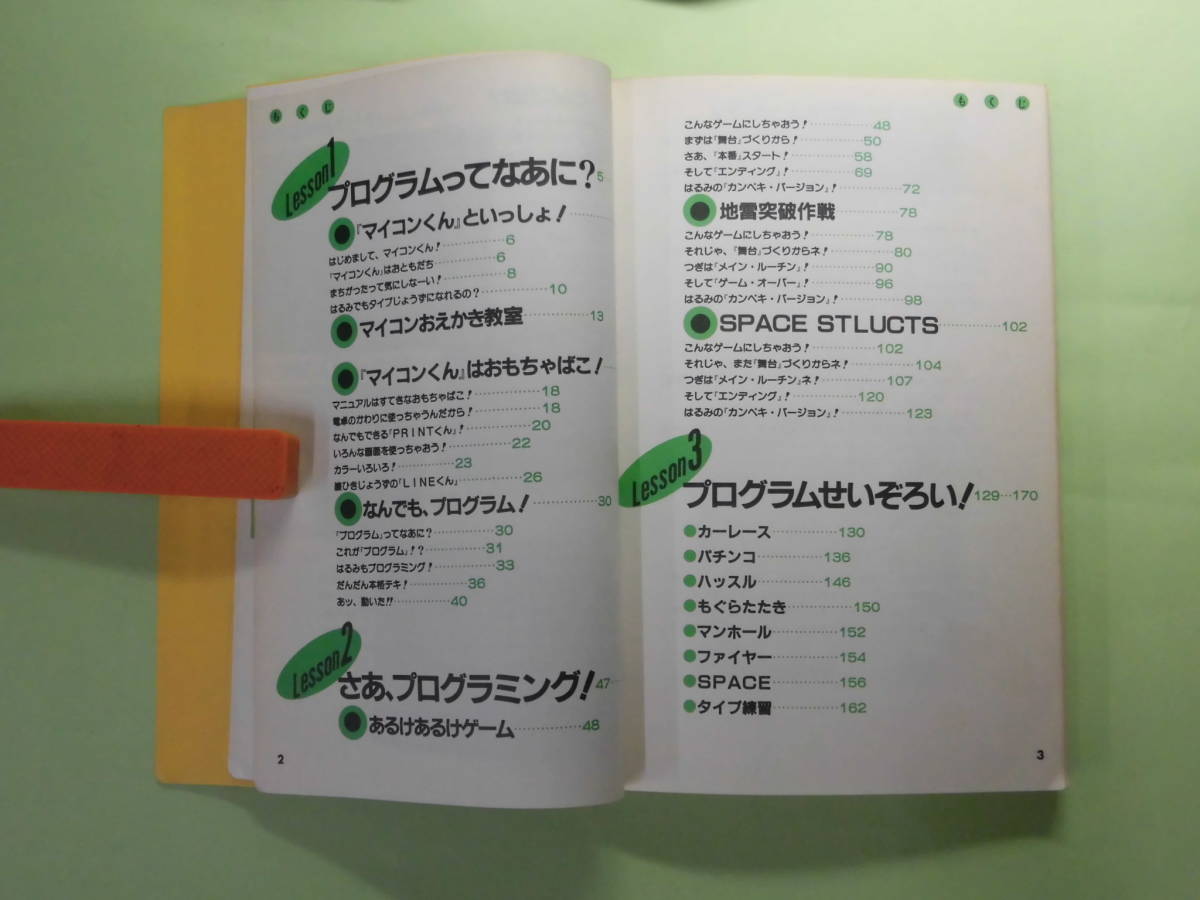 もくじ
Lesson1
プログラムってなあに？5
『マイコンくん』といっしょ！
はじめまして、マイコンくん！…………6
『マイコンくん』はおともだち…………6
まちがったって気にしなーい！…………8
はるみでもタイプじょうずになれるの？…………10
マイコンおえかき教室…………13
『マイコンくん』はおもちゃばこ！
マニュアルはすてきなおもちゃばこ！…………18
電卓のかわりに使っちゃうんだから！…………18
なんでもできる「PRINTくん」！…………20
いろんな画面を使っちゃおう！…………22
カラーいろいろ！…………23
線ひきじょうずの「LINEくん」…………26
なんでも、プログラム！…………30
「プログラム」ってなあに？…………30
これが「プログラム」！？…………31
はるみもプログラミング！…………33
だんだん本格テキ！…………36
あッ、動いた!!…………40
Lesson2
さあ、プログラミング！47
あるけあるけゲーム…………48
2
もくじ
こんなゲームにしちゃおう！…………48
まずは「舞台」づくりから！…………50
さあ、「本番」スタート！…………58
そして「エンディング」！…………69
はるみの「カンペキ・バージョン」！…………72
地雷突破作戦…………78
こんなゲームにしちゃおう！…………78
それじゃ、「舞台」づくりからネ！…………80
つぎは「メイン・ルーチン」！…………90
そして「ゲーム・オーバー」！…………96
はるみの「カンペキ・バージョン」！…………98
SPACE STLUCTS…………102
こんなゲームにしちゃおう！…………102
それじゃ、また「舞台」づくりからネ！…………104
つぎは「メイン・ルーチン」ネ！…………107
そして「エンディング」！…………120
はるみの「カンペキ・バージョン」！…………123
Lesson3
プログラムせいぞろい！129…170
●カーレース…………130
●パチンコ…………136
●ハッスル…………146
●もぐらたたき…………150
●マンホール…………152
●ファイヤー…………154
●SPACE…………156
●タイプ練習…………162
3